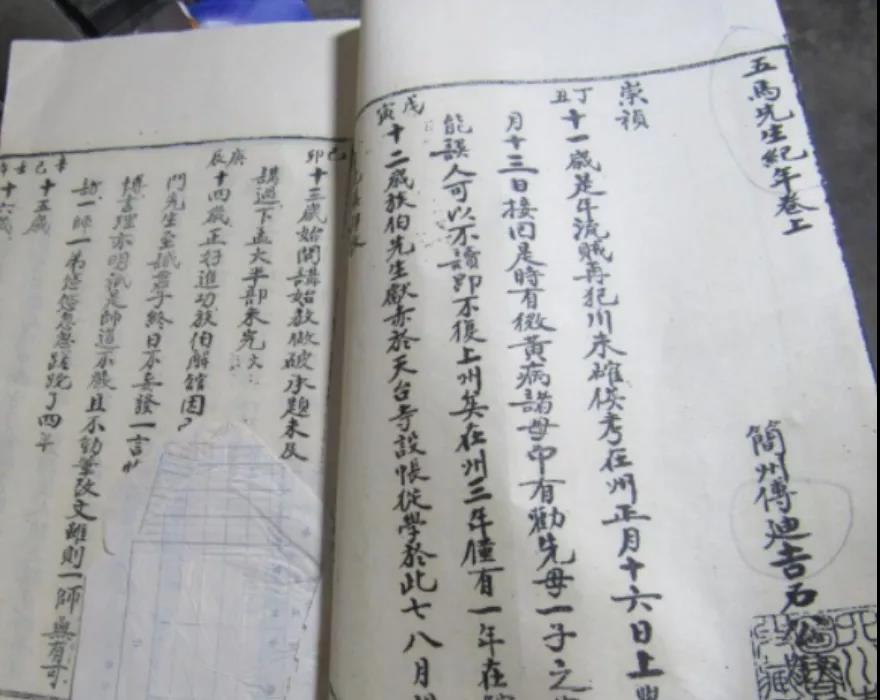 五馬先生紀年卷上
簡州傅迪吉石公
崇禎
丁丑
十一歲是年流賊再犯川未確候考在州正月十六日上
月十三日接回是時有微黃病諸母印有勸先母一子之
能誤人可以不讀即不復上州矣在州三年僅有一年在
戊寅
十二歲族伯先生獻赤於天台寺設帳從學於此七八月
己卯
十三歲始開講始教做破承題未及
講過下孟大半部未完
庚辰
十四歲正好進功族伯解館因
門先生至誠君子終日不妄發一言
博書理亦明誠是師道不嚴且不勤筆改文雖則一師無有可
訪一師一弟悠悠忽忽蹉跎了四年
辛巳
十五歲
壬
十六歲